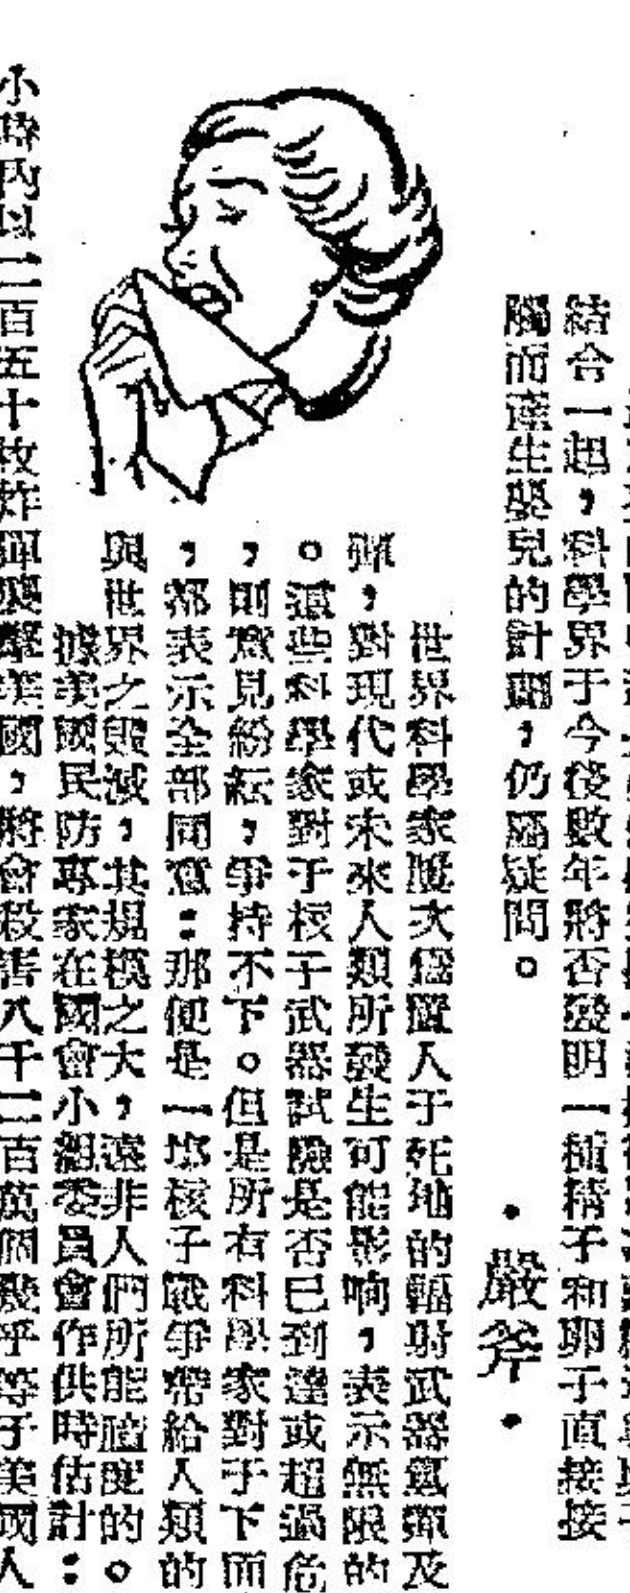 結合一起，科學界于今後數年將否發明一種精子和卵子直接接
觸而產生嬰兒的計劃，仍屬疑問。
・嚴斧・
世界科學家屢次爲置人于死地的輻射武器氫彈及
彈，對現代或未來人類所發生可能影响，表示無限的
。這些科學家對于核子武器試驗是否已到達或超過危
，則意見紛紜，爭持不下。但是所有科學家對于下面
，都表示全部同意：那便是一塲核子戰爭帶給人類的
與世界之毀滅，其規模之大，遠非人們所能臆度的。
據美國民防專家在國會小組委員會作供時估計：
小時內以二百五十枚炸彈襲擊美國，將會殺害八千二百萬個幾乎等于美國人